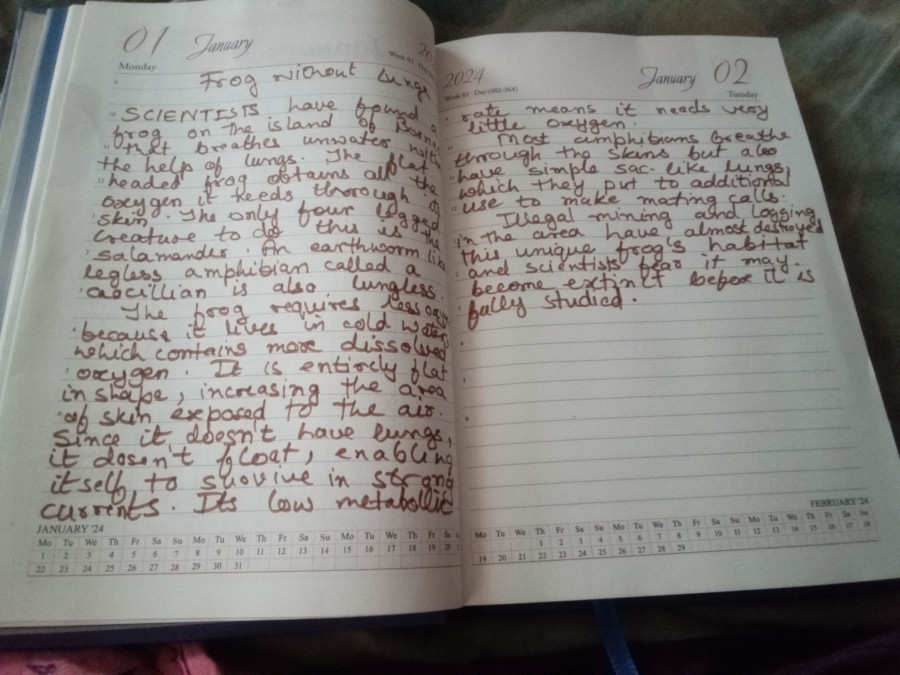 01 January
Monday
Week 01
Frog without Lungs
SCIENTISTS have found a
frog on the island of Borneo
that breathes unwater with
the help of lungs. The flat
headed frog obtains all the
oxygen it needs thorough
skin. The only four legged
creature to do this is the
salamander. An earthworm like
legless amphibian called a
caecillian is also lungless.
The frog requires less
because it lives in cold water
which contains more dissolved
oxygen. It is entirely flat
in shape, increasing the area
of skin exposed to the air.
Since it doesn't have lungs,
it dosen't float, enabling
itself to suovive in strong
currents. Its low metabollic
JANUARY '24
Mo Tu We Th Fr Sa Su Mo Tu We Th Fr Sa Su Mo Tu We Th Fr Sa
1 2 3 4 5 6 7 8 9 10 11 12 13 14 15 16 17 18 19 20
22 23 24 25 26 27 28 29 30 31
2024
Week 01 Day (002-364)
January 02
Tuesday
rate means it needs very
little oxygen.
Most amphibians breathe
through the skins but also
have simple sac-like lungs,
which they put to additional
use to make mating calls.
Illegal mining and logging
in the area have almost destroyed
this unique frog's habitat
and scientists fear it may
become extinct before it is
fully studied.
FEBRUARY '24
Mo Tu We Th Fr Sa Su Mo Tu We Th Fr Sa Su Mo Tu We Th Fr Sa Su
1 2 3 4 5 6 7 8 9 10 11 12 13 14 15 16 17 18
19 20 21 22 23 24 25 26 27 28 29